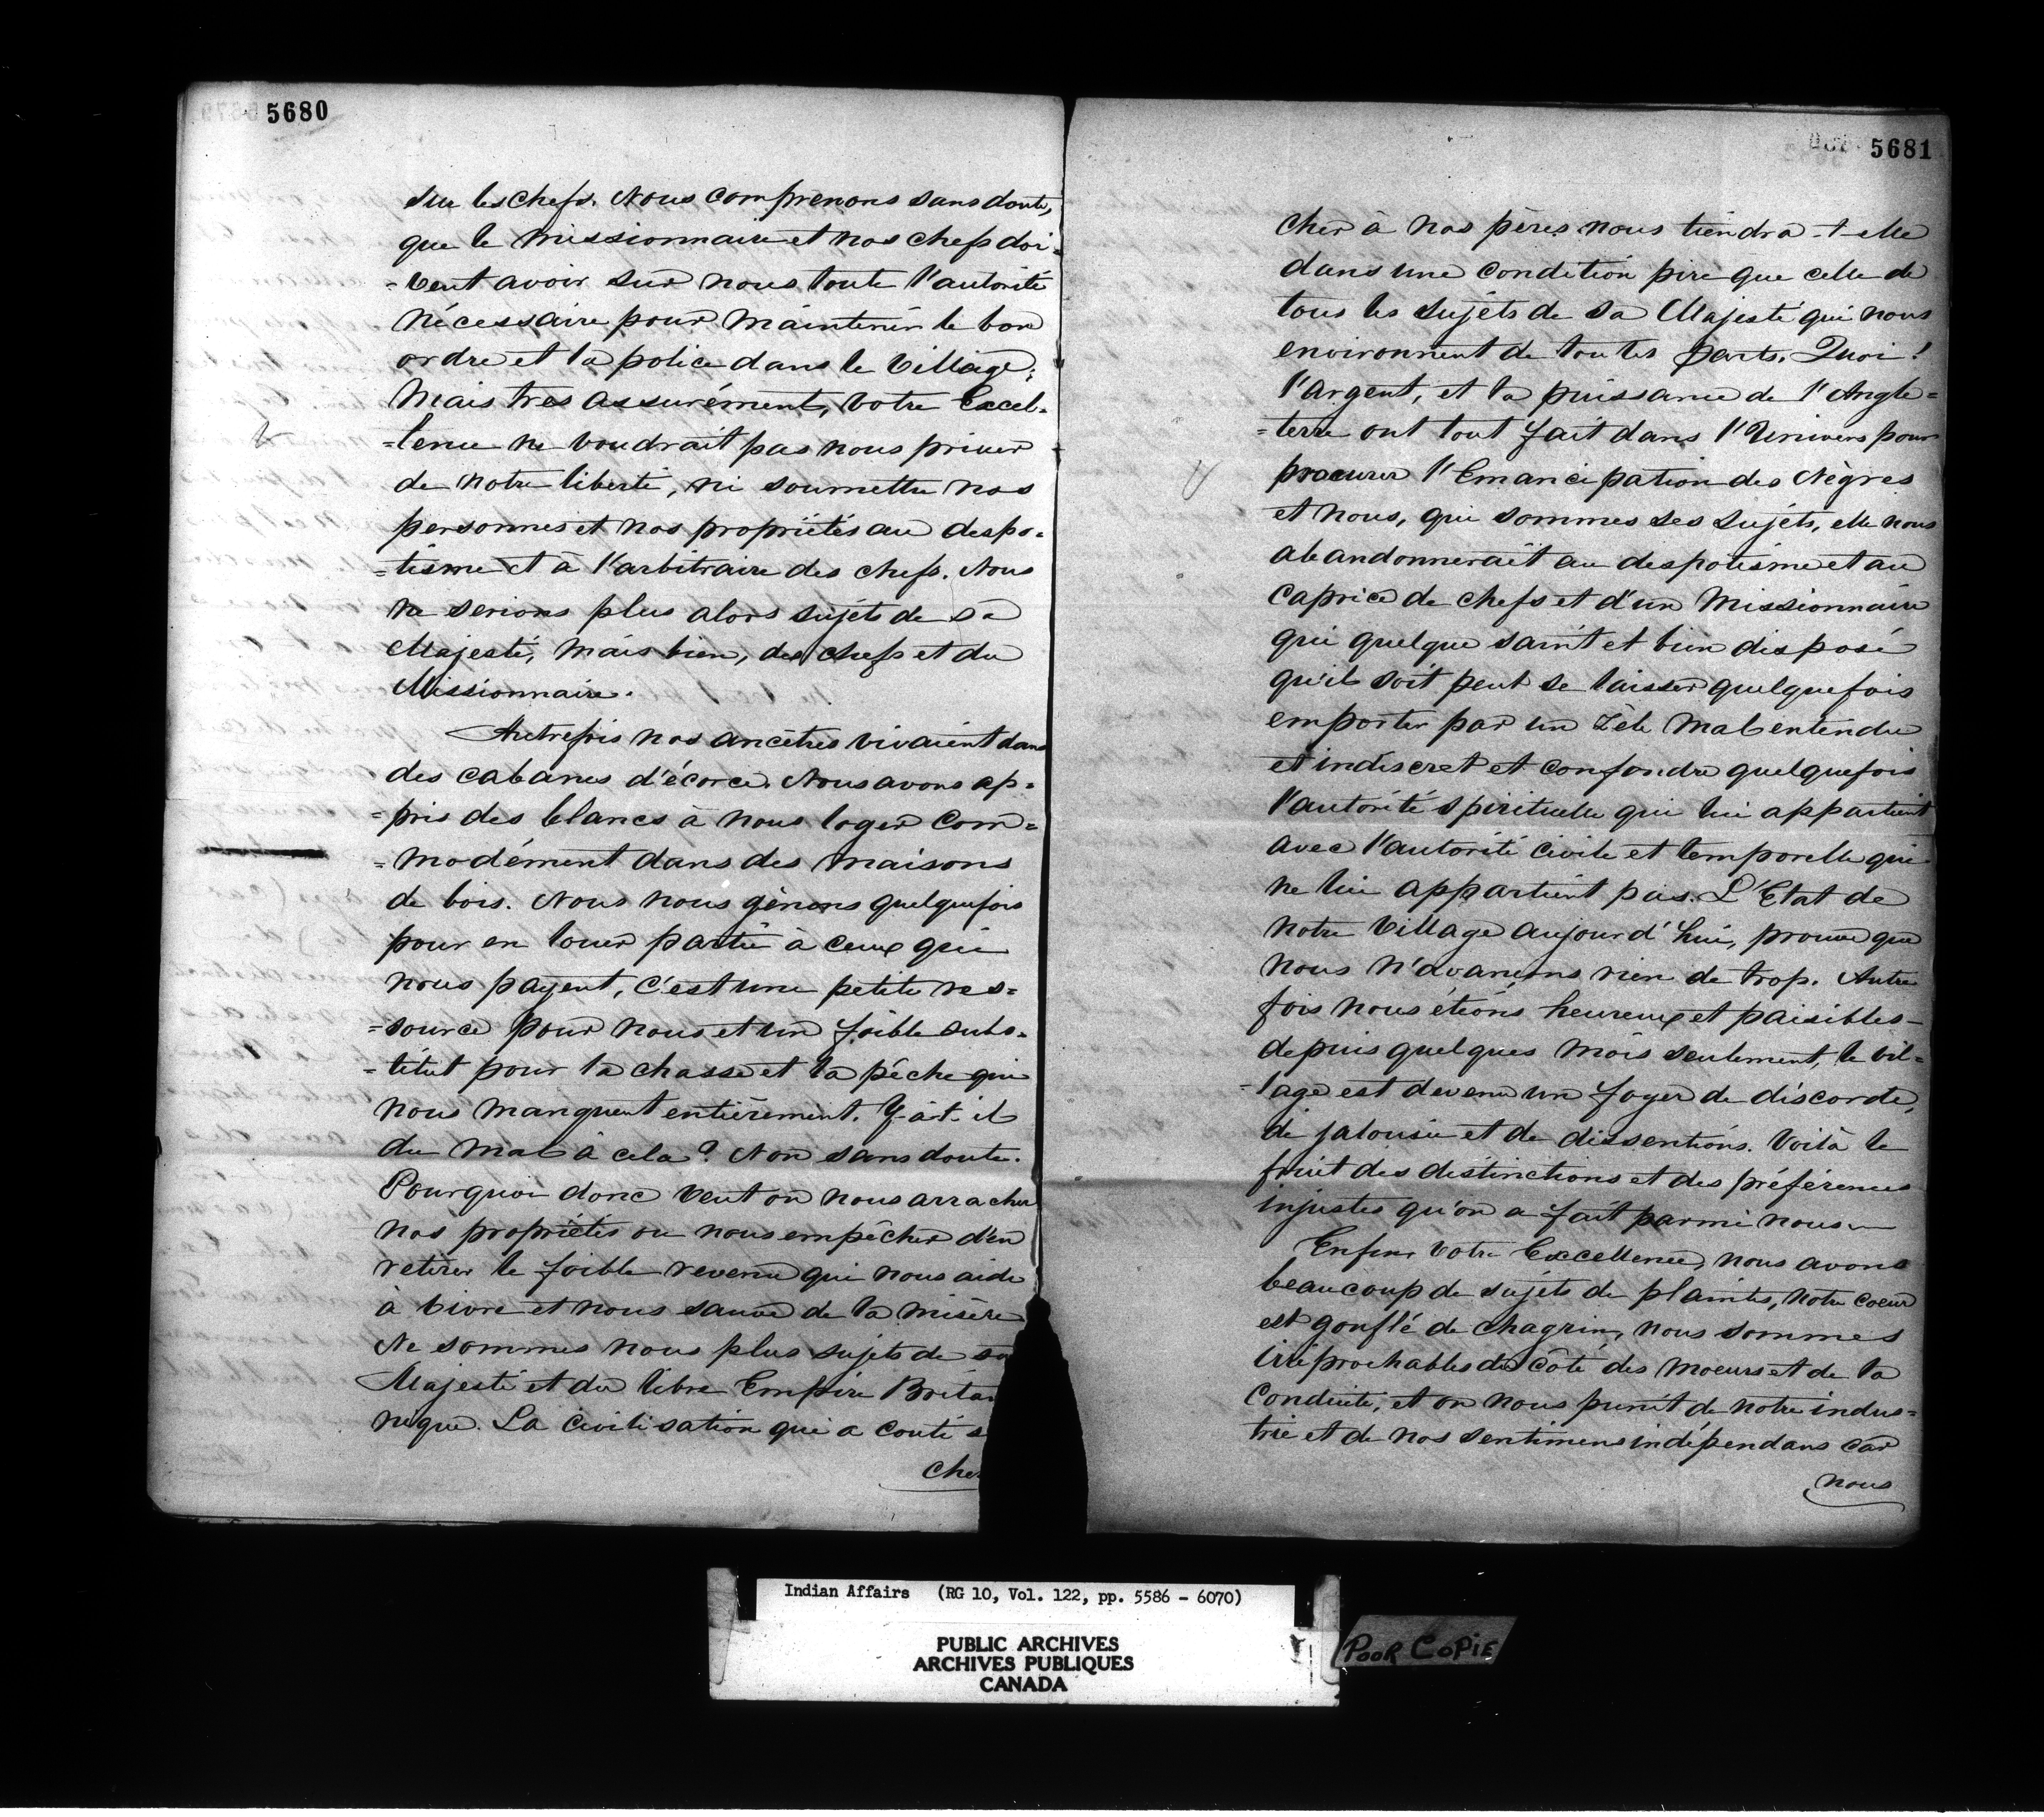 5680
sur les chefs. Nous comprenons sans doute,
que le missionnaire et nos chefs doi-
=vent avoir sur nous toute l'autorité
nécessaire pour maintenir le bon
ordre et la police dans le village;
Mais très assurément, votre Excel-
=lence ne voudrait pas nous priver
de notre liberté, ni soumettre nos
personnes et nos propriétés au despo=
=tisme et à l'arbitraire des chefs. Nous
ne serions plus alors sujets de sa
Majesté, mais bien, des chefs et du
Missionnaire.
Autrefois nos ancêtres vivaient dans
des cabanes d'écorce. Nous avons ap=
=pris des blancs à nous loger com=
=modément dans des maisons
de bois. Nous nous gênons quelquefois
pour en louer partie à ceux qui
nous payent, c'est une petite res=
=source pour nous et un foible subs=
=titut pour la chasse et la pêche qui
nous manquent entièrement. Y-a-t-il
du mal à cela? Non sans doute.
Pourquoi donc veut on nous arracher
nos propriétés ou nous empêcher d'en
retirer le foible revenu qui nous aide
à vivre et nous sauve de la misère
Ne sommes nous plus sujets de sa
Majesté et du libre Empire Britan
nique. La civilisation qui a couté s
cher
5681
cher à nos pères nous tiendra-t-elle
dans une condition pire que celle de
tous les sujets de sa Majesté qui nous
environnent de toutes parts. Quoi!
l'argent, et la puissance de l'Angle=
=terre ont tout fait dans l'Univers pour
procurer l'Emancipation des Nègres
et nous, qui sommes ses sujets, elle nous
abandonnerait au despotisme et au
caprice de chefs et d'un Missionnaire
qui quelque saint et bien disposé
qu'il soit peut se laisser quelquefois
emporter par un zèle mal entendu
et indiscret et confondre quelquefois
l'autorité spirituelle qui lui appartient
avec l'autorité civile et temporelle qui
ne lui appartient pas. L'Etat de
notre village aujourd'hui, prouve que
nous n'avançons rien de trop. Autre
fois nous étions heureux et paisibles -
depuis quelques mois seulement, le vil=
=lage est devenu un foyer de discorde,
de jalousie et de dissentions. Voilà le
fruit des distinctions et des préférences
injustes qu'on a fait parmi nous -
Enfin votre Excellence, nous avons
beaucoup de sujets de plaintes, notre coeur
est gonflé de chagrin, nous sommes
irréprochables du côté des moeurs et de la
conduite, et on nous punit de notre indus=
trie et de nos sentimens indépendans car
nous
Indian Affairs (RG 10, Vol. 122, pp. 5586 - 6070)
PUBLIC ARCHIVES
ARCHIVES PUBLIQUES
CANADA
POOR COPIE